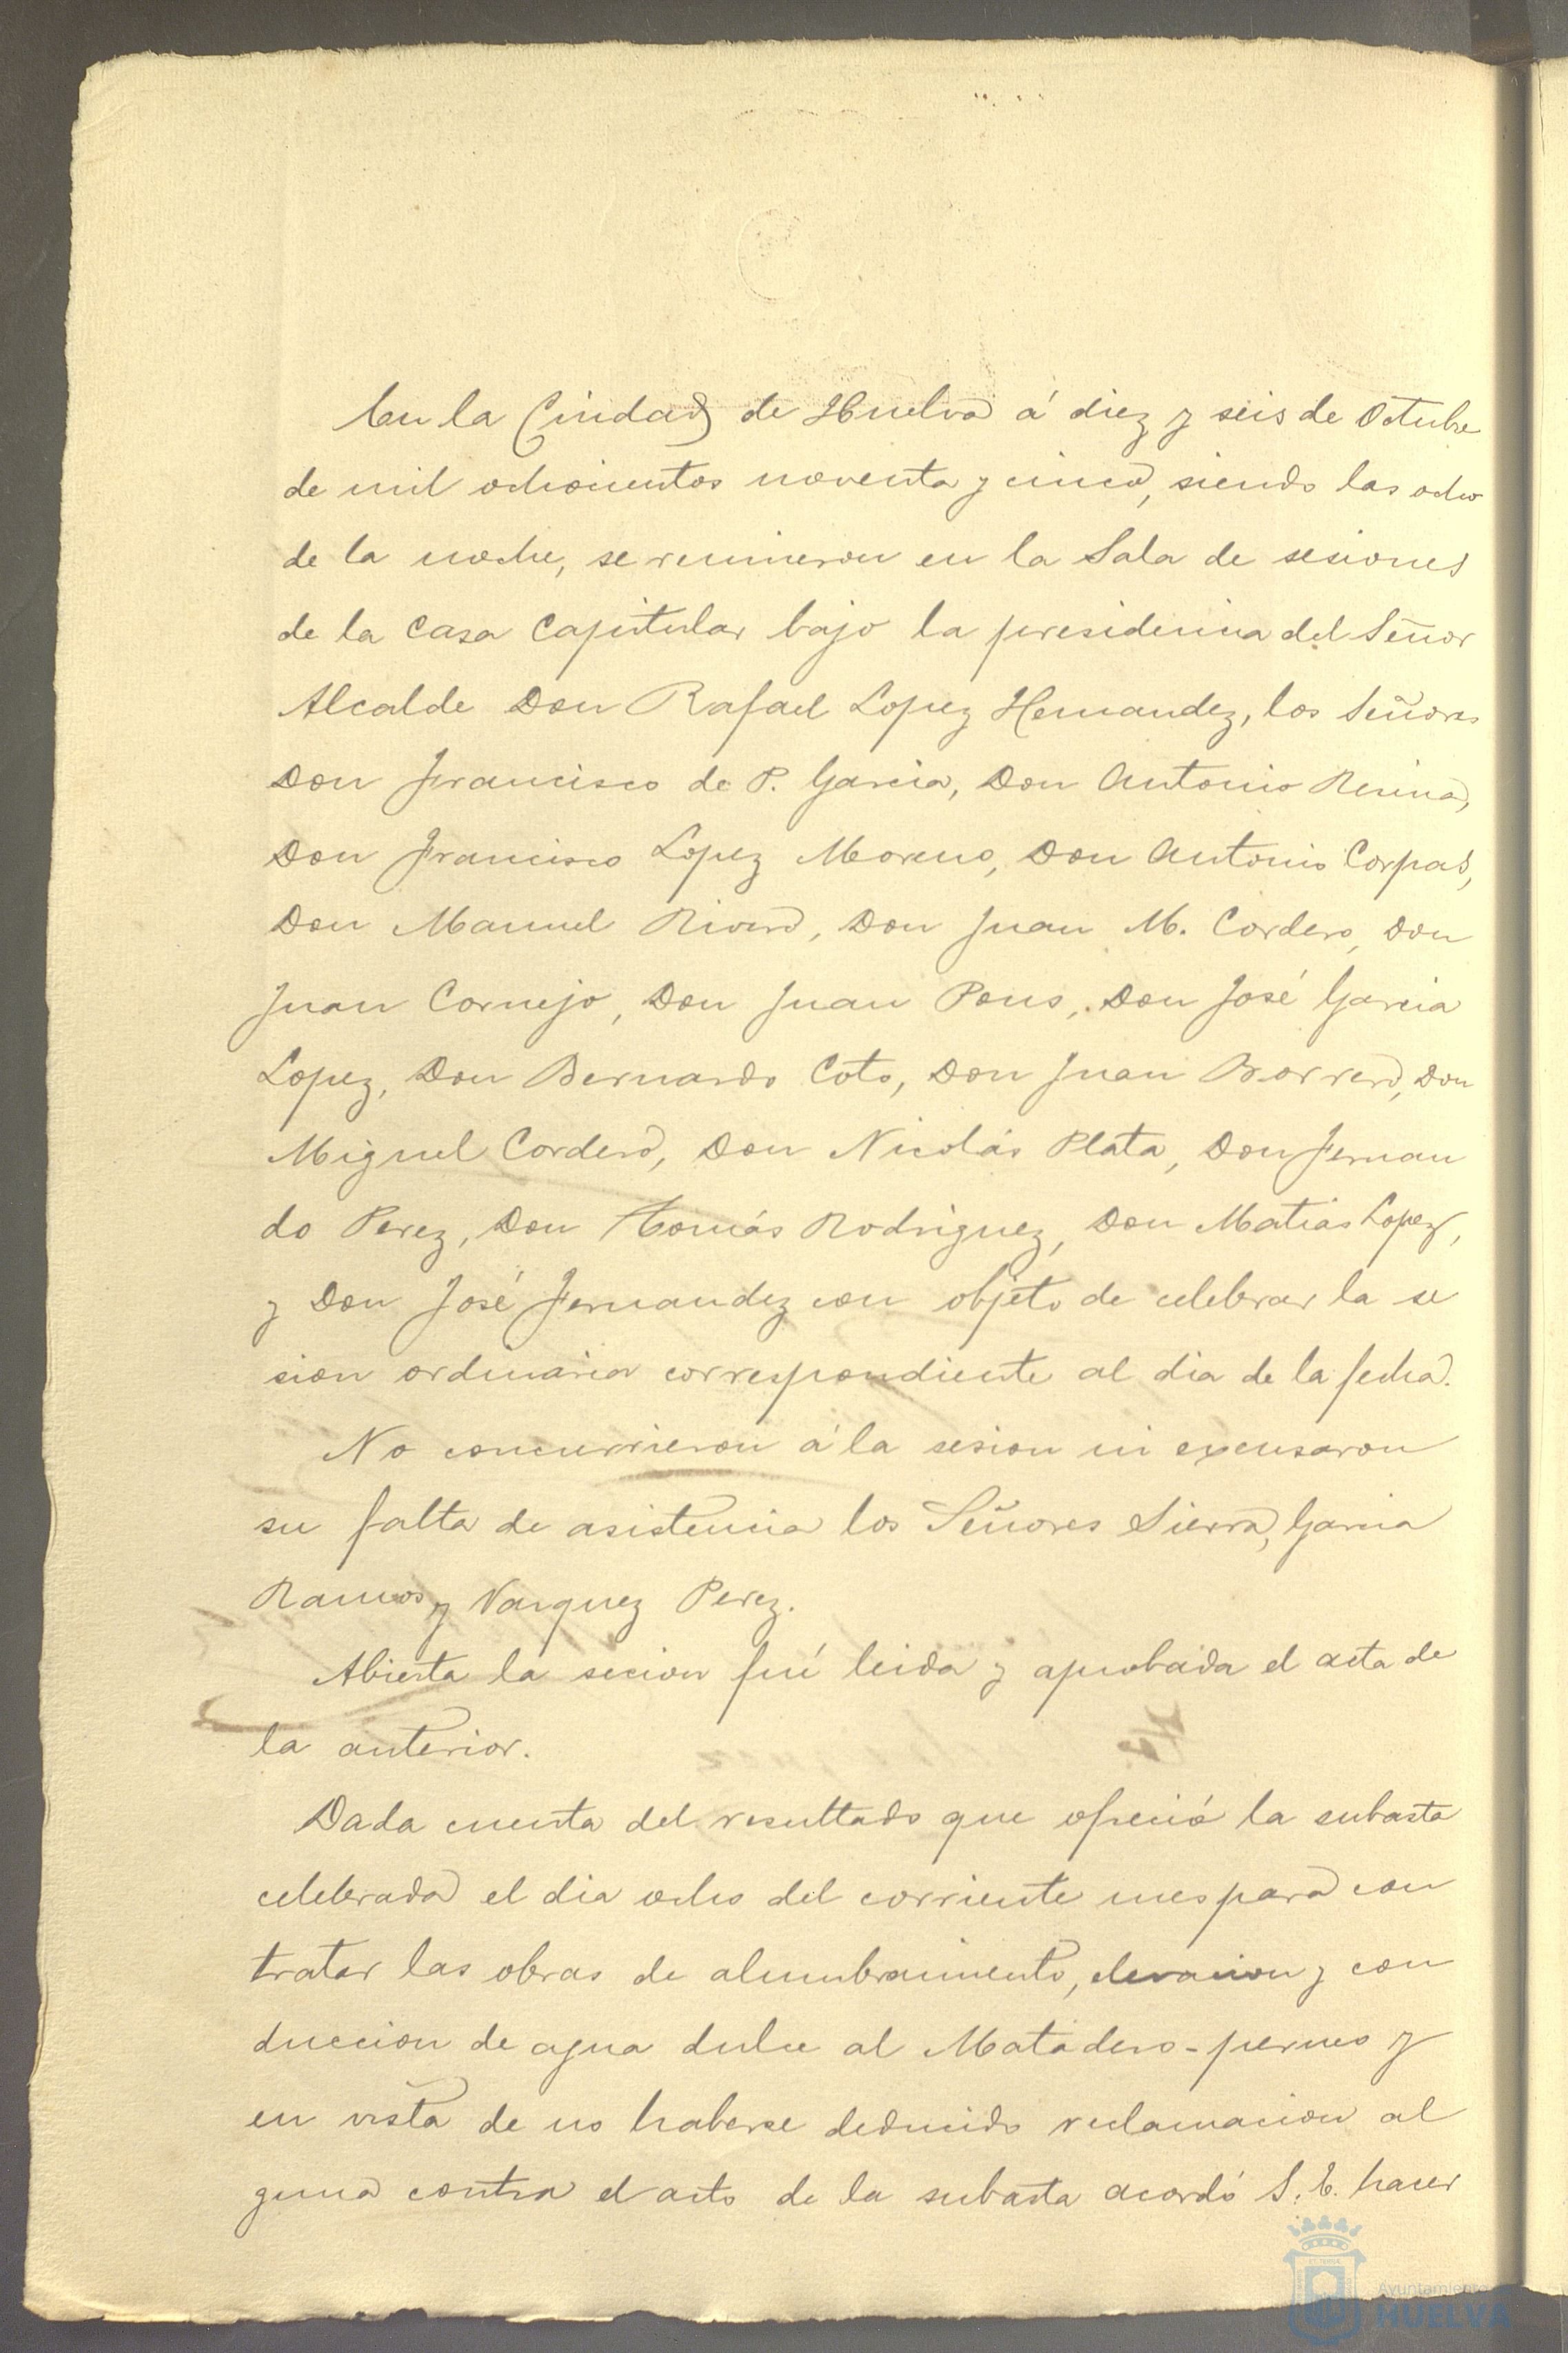 En la Ciudad de Huelva á diez y seis de Octubre
de mil ochocientos noventa y cinco, siendo las ocho
de la noche, se reunieron en la Sala de sesiones
de la Casa Capitular bajo la presidencia del Señor
Alcalde Don Rafael Lopez Hernandez, los Señores
Don Francisco de P. Garcia, Don Antonio Resina,
Don Francisco Lopez Moreno, Don Antonio Corpas,
Don Manuel Rivero, Don Juan M. Cordero, Don
Juan Cornejo, Don Juan Pons, Don José Garcia
Lopez, Don Bernardo Coto, Don Juan Borrero, Don
Miguel Cordero, Don Nicolás Plata, Don Fernan
do Perez, Don Tomás Rodriguez, Don Matias Lopez,
y Don José Fernandez con objeto de celebrar la se
sion ordinaria correspondiente al dia de la fecha.
No concurrieron á la sesion ni excusaron
su falta de asistencia los Señores Sierra, Garcia
Ramos y Vazquez Perez.
Abierta la secion fué leida y aprobada el acta de
la anterior.
Dada cuenta del resultado que ofreció la subasta
celebrada el dia ocho del corriente mes para con
tratar las obras de alumbramiento, elevacion y con
duccion de agua dulce al Matadero-perneo y
en vista de no haberse deducido reclamacion al
guna contra el acto de la subasta acordó S. E. hacer
Ayuntamiento
HUELVA